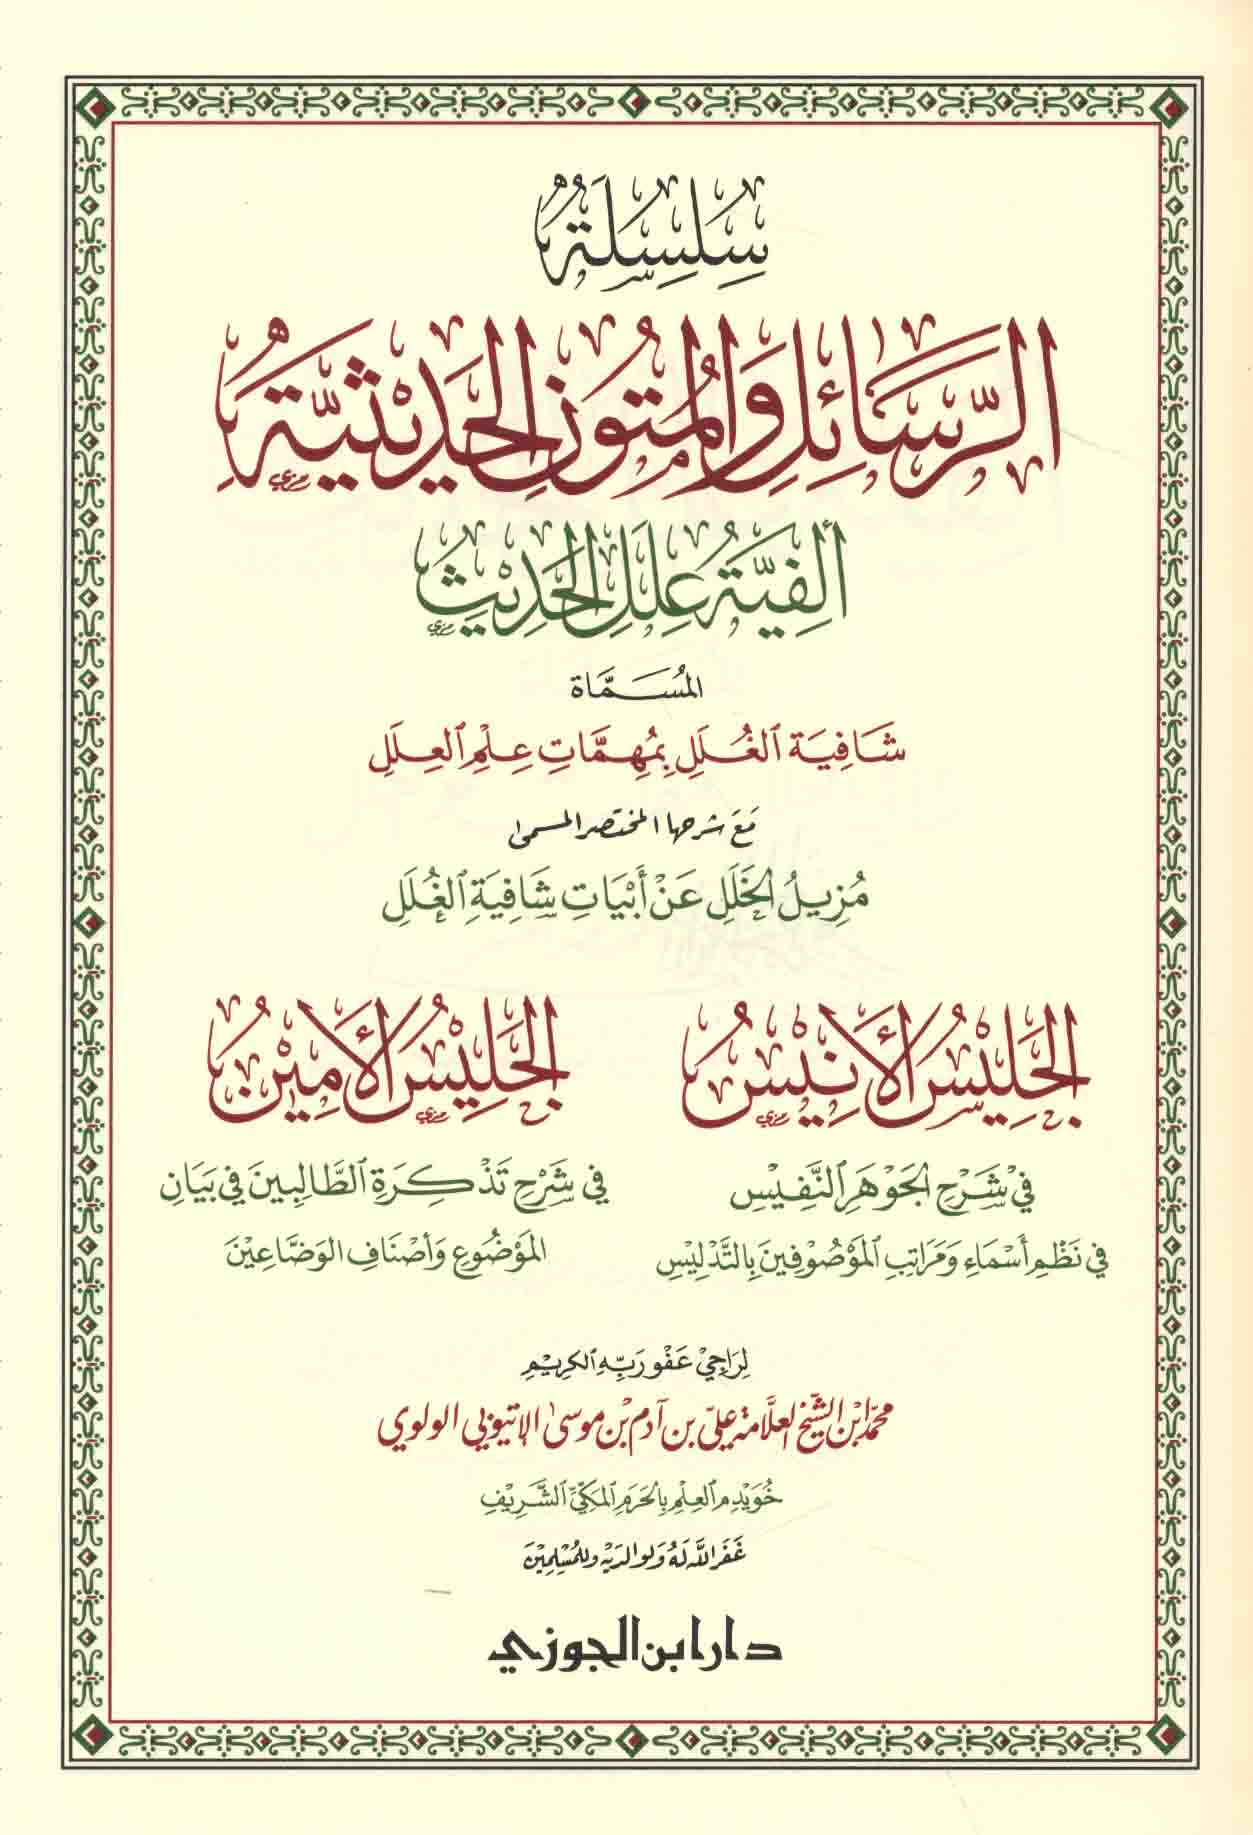 سِلْسِلَةُ
الرَّسَائِلِ وَالمُتُونِ الحَدِيثِيَّةِ
ألفِيَّةُ عِلَلِ الحَدِيْثِ
المُسَمَّاة
شَافِيَة الغُلَلِ بِمُهِمَّاتِ عِلْمِ العِلَلِ
مَعَ شرحها المختصر المسمى
مُزِيلُ الخَلَلِ عَنْ أَبْيَاتِ شَافِيَةِ الغُلَلِ
الجَلِيْسُ الأَنِيْسُ
فِيْ شَرْحِ الجَوْهَرِ النَّفِيْسِ
في نَظْمِ أَسْمَاءِ وَمَرَاتِبِ المَوْصُوْفِينَ بِالتَّدْلِيْسِ
الجَلِيْسُ الأَمِيْنُ
في شَرْحِ تَذْكِرَةِ الطَّالِبِينَ في بَيَانِ
المَوْضُوعِ وَأَصْنَافِ الوَضَّاعِيْنَ
لِرَاجِيْ عَفْو رَبِّهِ الكَرِيْمِ
محمّد ابن الشيخ العلَّامة عليّ بن آدم بن موسى الإتيوبي الولوي
خُوَيْدِم العِلْمِ بِالحَرَمِ المَكِّيِّ الشَّرِيْفِ
غَفَرَ اللَّه لَهُ وَلوالديْهِ وَللمُسْلِمِيْنَ
دار ابن الجوزي